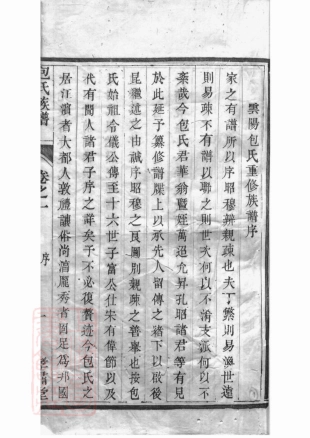 雲陽包氏重修族譜序
家之有譜所以序昭穆辨親疎也夫丁繁則易渙世遠
則易疎不有譜以聯之則世次何以不淆支派何以不
紊哉今包氏君華翁暨姪萬迢允昇孔昭諸君等有見
於此延予纂修譜牒上以承先人留傳之緒下以啟後
昆繼述之由誠序昭穆之良圖別親疎之善舉也按包
氏始祖合儀公傳至十六世子富公仕宋有偉節以及
代有聞人諸君子序之詳矣予不必復贅迹今包氏之
居江濱者大都人敦禮讓俗尚淳龐秀者固足為邦國
包氏族譜
卷之一
序